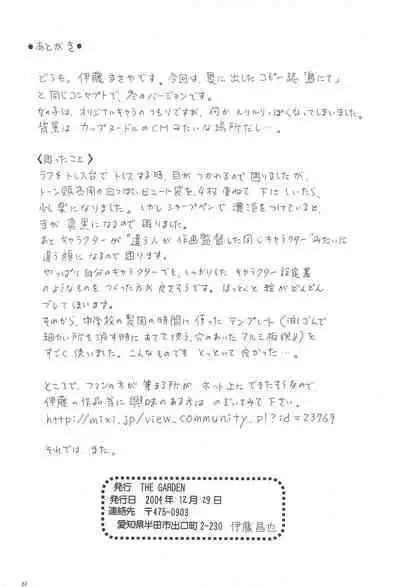 ●あとがき●
どうも、伊藤まさやです。今回は、夏に出したコピー誌「島にて」
と同じコンセプトで、冬のバージョンです。
女の子は、オリジナルキャラのつもりですが、何か ルリルリっぽくなってしまいました。
背景は カップヌードルのCMみたいな場所だし…。
〈困ったこと〉
ラフをトレス台で トレスする時、目が つかれるので 困りましたが、
トーン販売用の白っぽいビニール袋を4枚重ねて 下にしいたら、
少し楽になりました。しかしシャープペンで 濃淡をつけていると、
手が 真黒になるので 困りました。
あと キャラクターが "違う人が 作画監督した同じキャラクター"みたいに
違う顔に なるので 困ります。
やっぱり自分のキャラクターでも、しっかりした キャラクター設定書
のようなものを つくった方が 良さそうです。ほっとくと 絵が どんどん
ブレてしまいます。
そのから、中学校の製図の時間に 使った テンプレート(消しゴムで
細かい所を 消す時に あてて使う、穴のあいた アルミ板状の)を
すごく 使いました。こんなものでも とっといて 良かった…。
ところで、ファンの方が 集まる所が ネット上に できたそうなので
伊藤の作品等に 興味のある方は のぞいてみて 下さい。
http://mixi.jp/view_community.pl?id=23769
それでは また。
発行 THE GARDEN
発行日 2004年 12月 29日
連絡先 〒475-0903
愛知県半田市出口町2-230 伊藤昌也